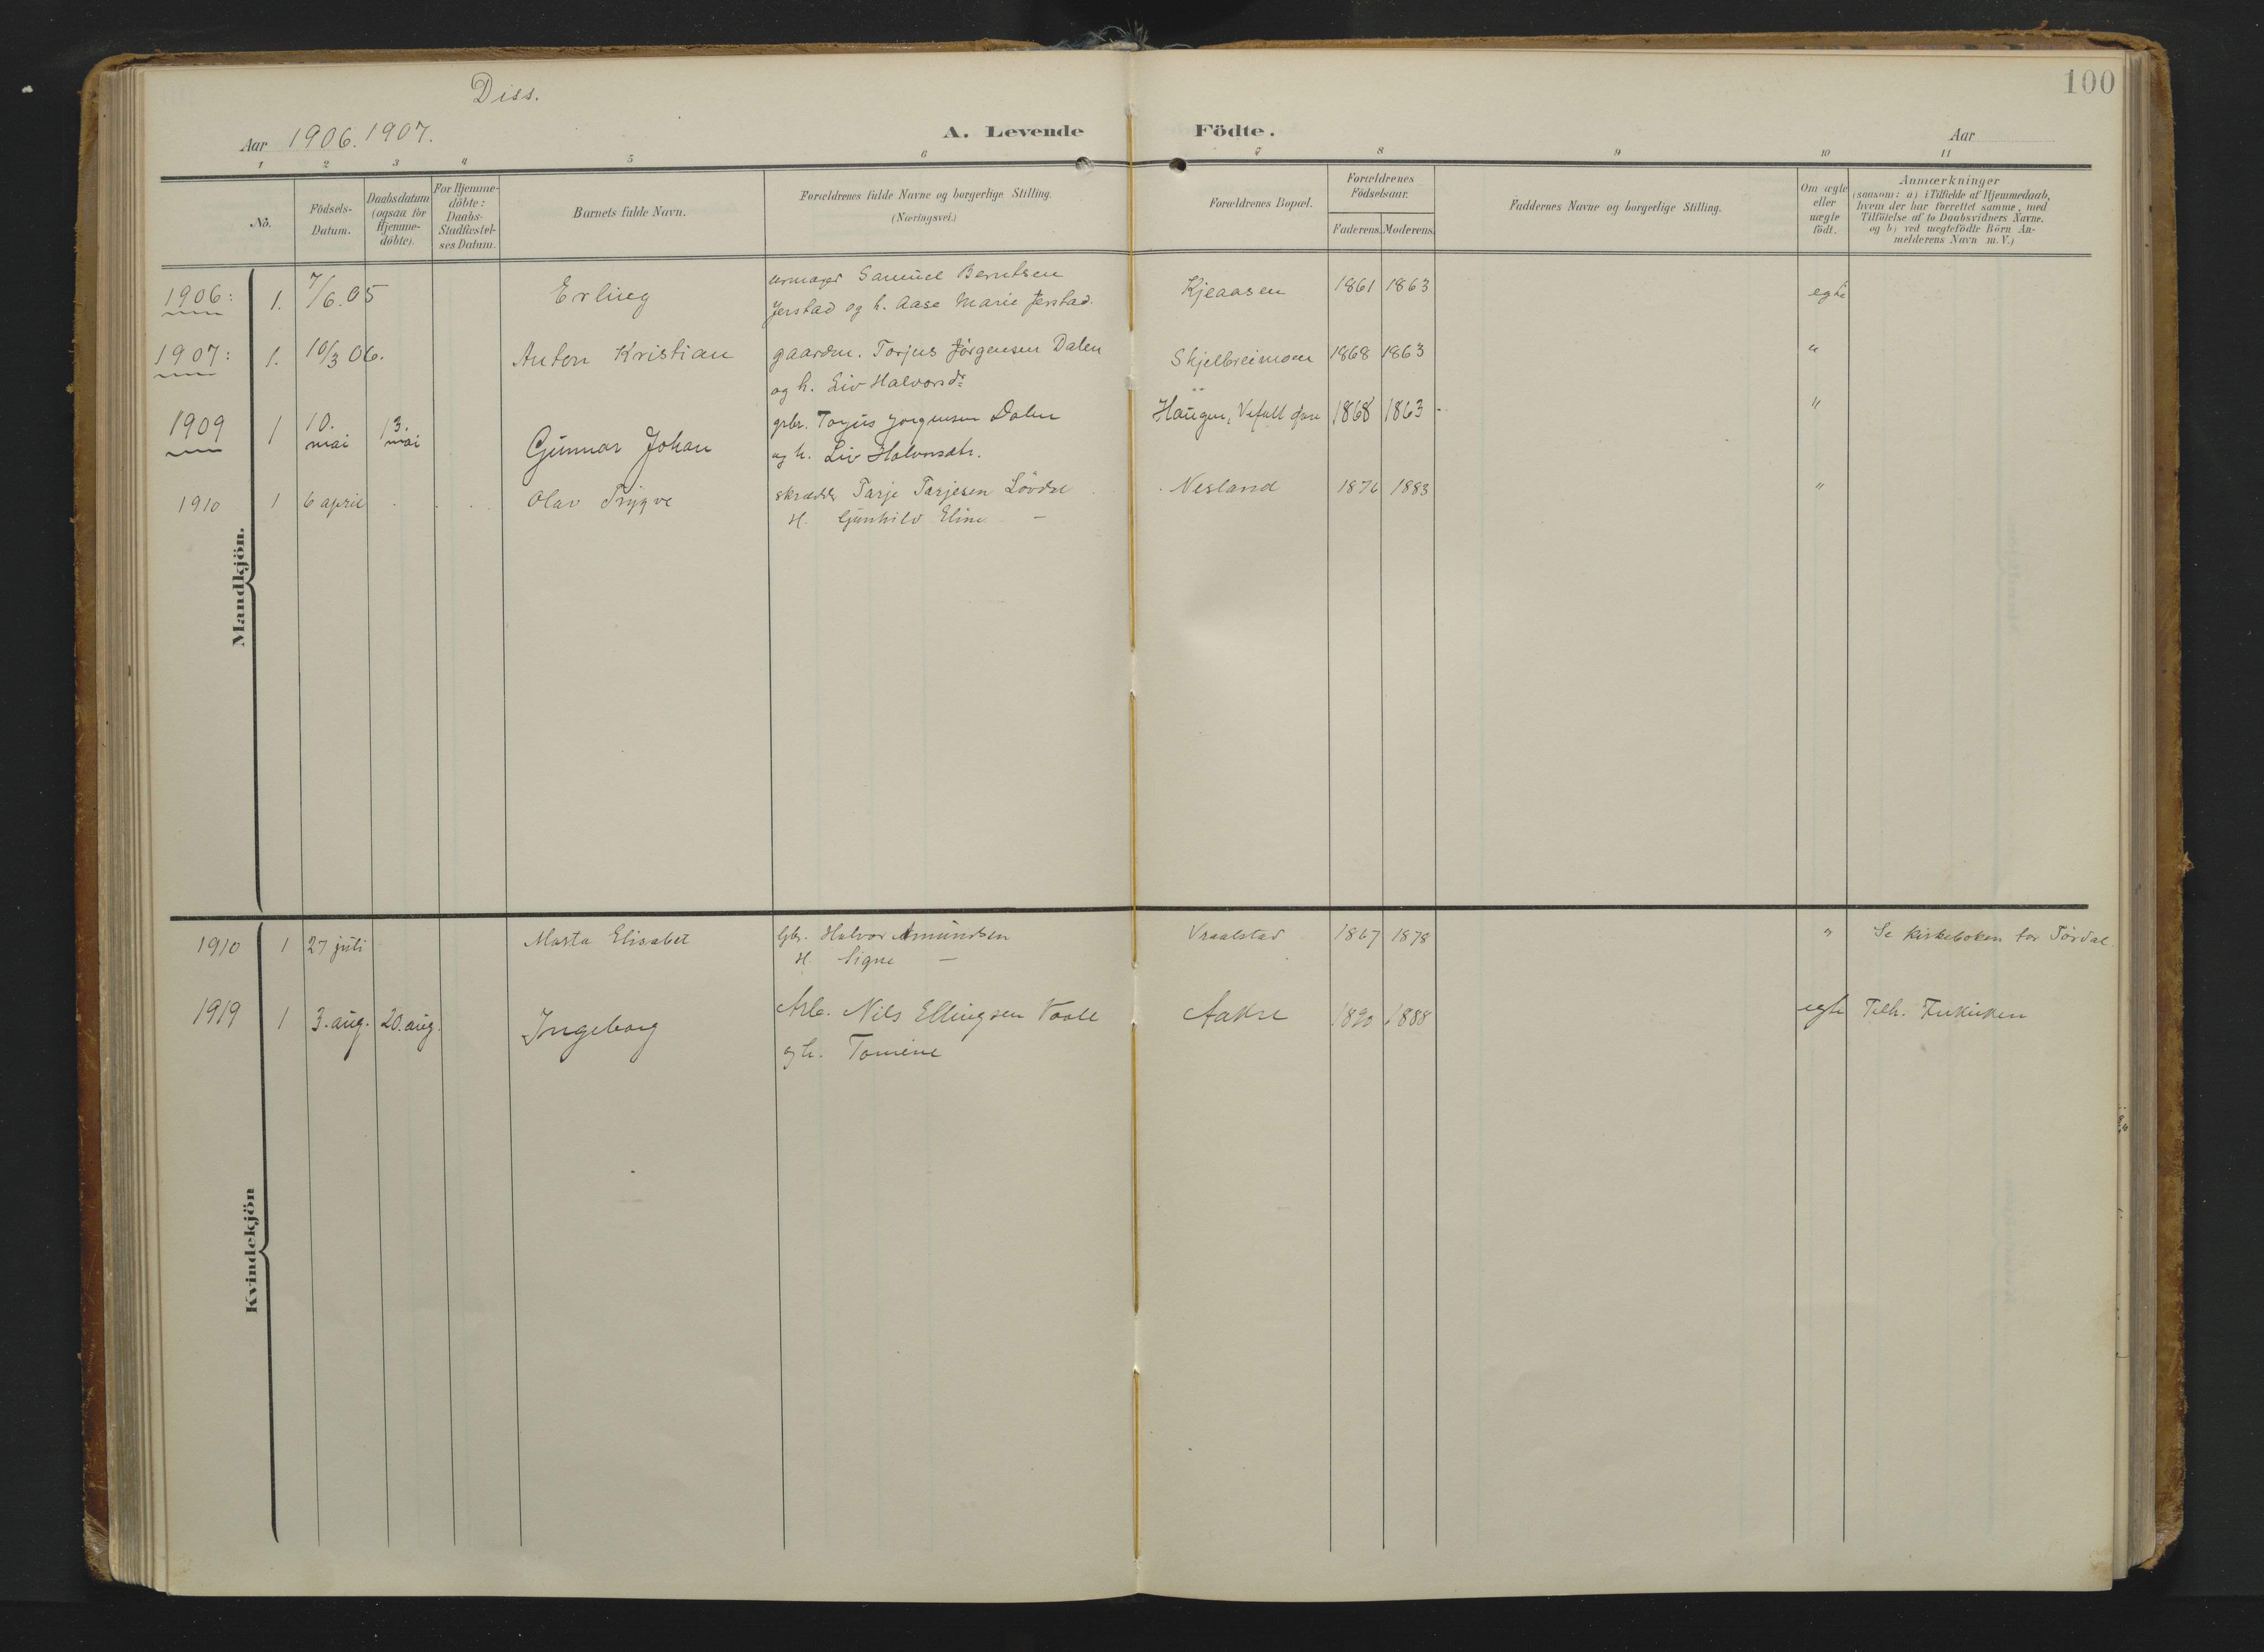 Diss.
100
Aar 1906. 1907.
A. Levende Födte.
Aar
1 2 3 4 5 6 7 8 9 10 11
No.
Födsels-
Datum.
Daabsdatum
(ogsaa for
Hjemme-
döbte).
For Hjemme-
döbte:
Daabs-
Stadfæstel-
ses Datum.
Barnets fulde Navn.
Forældrenes fulde Navne og borgerlige Stilling.
(Næringsvei.)
Forældrenes Bopæl.
Forældrenes
Födselsaar.
Faderens. Moderens.
Faddernes Navne og borgerlige Stilling.
Om ægte
eller
uægte
födt.
Anmærkninger
(saasom: a) i Tilfælde af Hjemmedaab,
hvem der har forrettet samme, med
Tilföielse af to Daabsvidners Navne.
og b) ved uægtefödte Börn An-
melderens Navn m. V.)
Mandkjön.
1906: 1. 7/6.05 Erling urmager Samuel Berntsen Kjeaasen 1861 1863 egte
Jerstad og h. Aase Marie Jerstad.
1907: 1. 10/3 06. Anton Kristian gaardm. Torjus Jörgensen Dalen Skjelbreimoen 1868 1863 "
og h. Liv Halvorsdr.
1909 1 10. mai 13. mai Gunnar Johan grbr. Torjus Jorgensen Dalen Haugen, Vefall 1868 1863 "
og h. Liv Halvorsdtr.
1910 1 6 april Olav Trygve skrædder Tarje Tarjesen Lövdal Nesland 1876 1883 "
H. Gunhild Eline —
Kvindekjön
1910 1 27 juli Marta Elisabet Gbr. Halvor Amundsen Vraalstad 1867 1878 " Se kirkeboken for Tördal
H. Signe —
1919 1 3. aug. 20. aug. Ingeborg Arb. Nils Ellingsen Vaale Aakre 1890 1888 egte Tilh. Frikirken
og h. Tomine